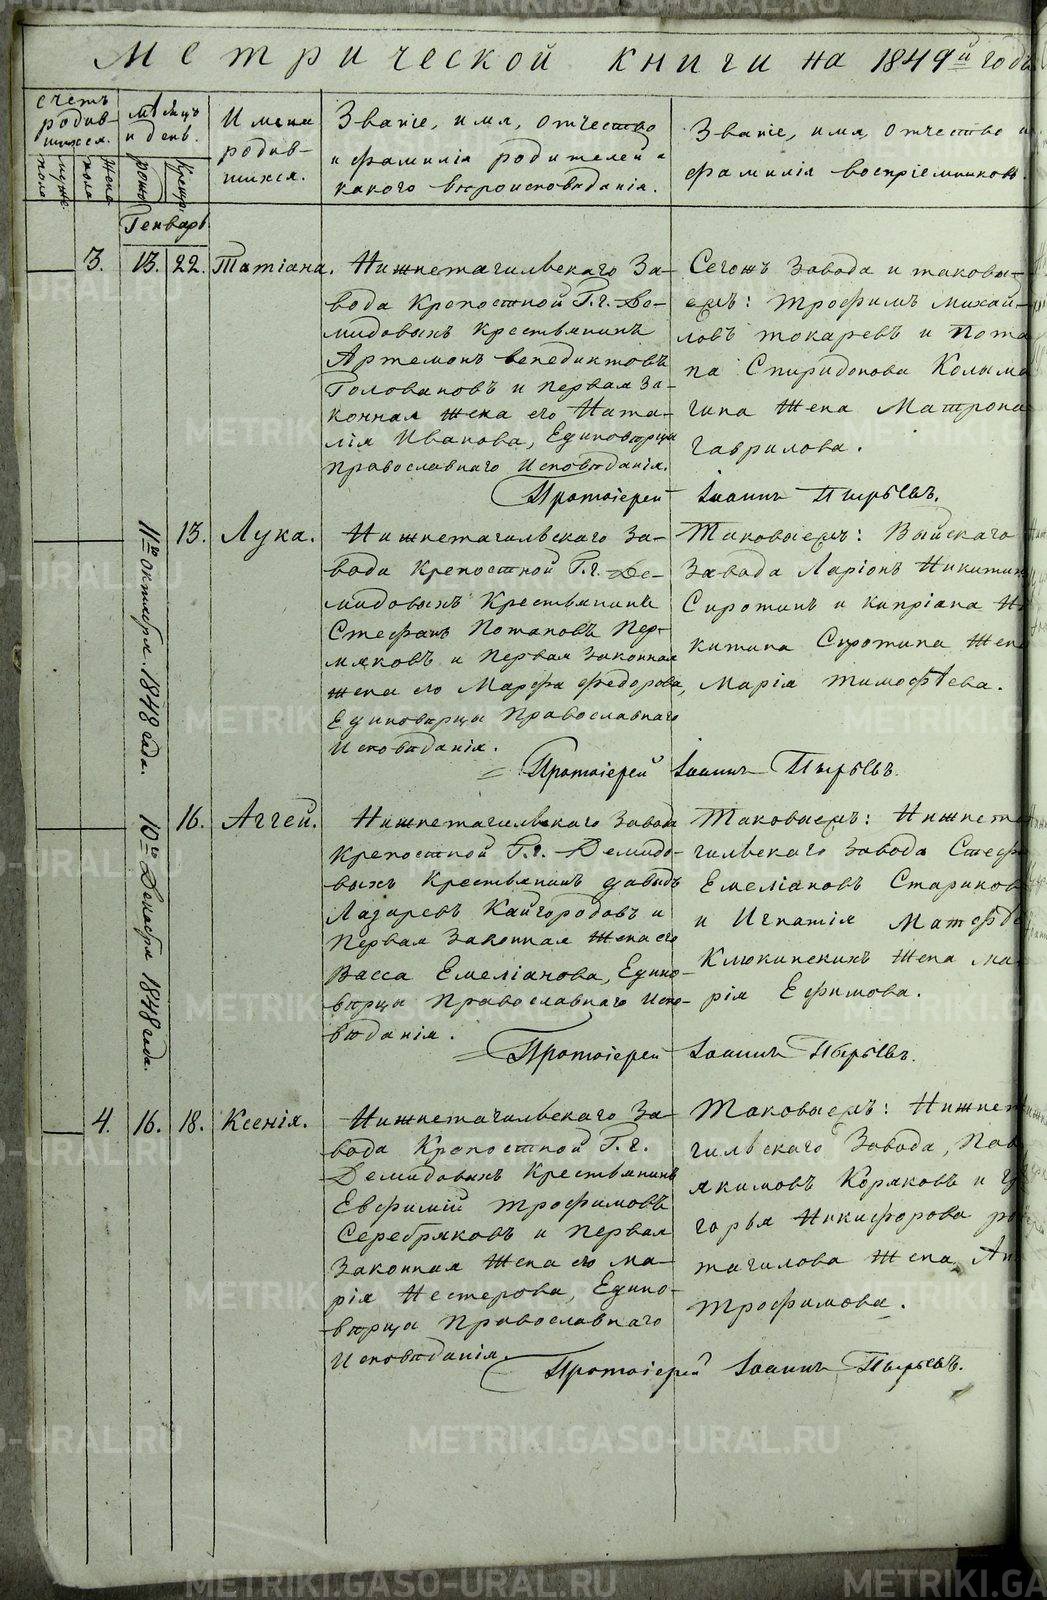 Метрической книги на 1849й годъ
Счетъ родив-шихся.
Мѣсяцъ и день.
Имена родив-шихся.
Званіе, имя, отчество
и фамилія родителей и
какого вѣроисповѣданія.
Званіе, имя, отчество и
фамилія воспріемниковъ.
муже. пола
жен. пола
рожд.
Крещ.
Генварь
3. 13. 22. Татіана.
Нижнетагильскаго За-
вода Крепостной Г.г. Де-
мидовыхъ Крестьянинъ
Артемонъ Венедиктовъ
Головановъ и первая за-
конная жена его Ната-
лія Иванова, Единовѣрцы
православнаго Исповѣданія.
Сегожъ Завода и таковы-
ежъ: Трофимъ Михай-
ловъ Токаревъ и Пота
па Спиридонова Колма
гина Жена Матрона
Гаврилова.
Протоіерей Іоаннъ Пырьевъ.
11го октября. 1848 года. 13. Лука.
Нижнетагильскаго За-
вода Крепостной Г.г. Де-
мидовыхъ Крестьянинъ
Стефанъ Потаповъ Пер-
мяковъ и первая законная
жена его Марфа Федорова,
Единоверцы Православнаго
Исповѣданія.
Таковыежъ: Выйскаго
Завода Ларіонъ Никитинъ
Сиротинъ и Кипріана Ни
китина Сиротина Жена
Марія Тимофѣева.
Протоіерей Іоаннъ Пырьевъ.
10го Декабря 1848 года. 16. Аггей.
Нижнетагильскаго Завода
Крепостной Г.г. Демидо-
выхъ Крестьянинъ Давыдъ
Лазаревъ Кайгородовъ и
Первая Законная Жена его
Васса Емеліанова, Едино-
вѣрцы Православнаго Испо-
вѣданія.
Таковыежъ: Нижнета
гильскаго Завода Стеф
Емеліановъ Стариков
и Игнатія Матфѣ
Клюкинскихъ Жена Ма
рія Ефимова.
Протоіерей Іоаннъ Пырьевъ.
4. 16. 18. Ксенія.
Нижнетагильскаго За-
вода Крепостной Г.г.
Демидовыхъ Крестьянинъ
Евфимій Трофимовъ
Серебряковъ и Первая
Законная Жена его Ма-
рія Нестерова, Едино-
вѣрцы Православнаго
Исповѣданія.
Таковыежъ: Нижнет
гильскаго Завода, Пав
Якимовъ Коряковъ и Гр
горья Никифорова ро
тагилова Жена, Ан
Трофимова.
Протоіерей Іоаннъ Пырьевъ.
METRIKI.GASO-URAL.RU